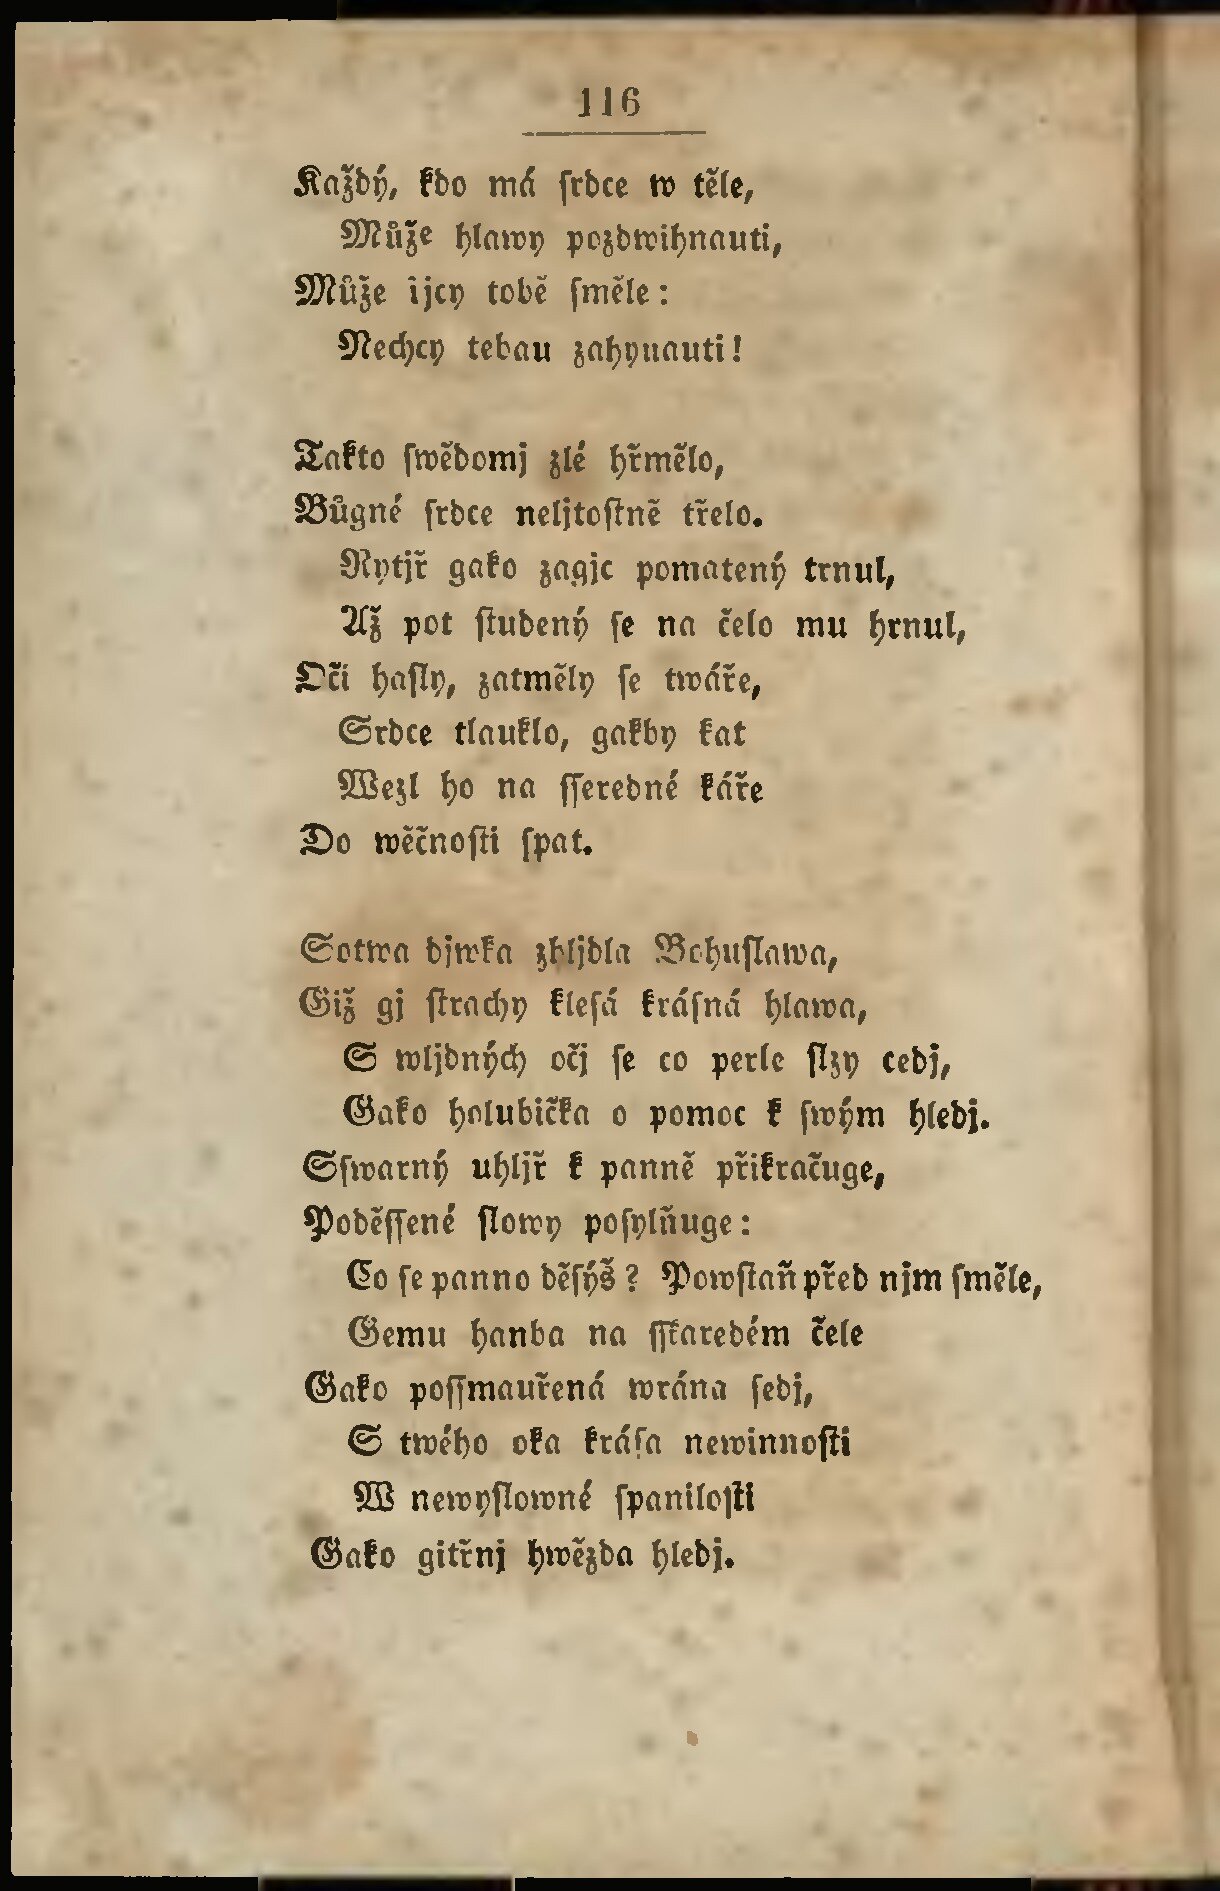 116
Každý, kdo má ſrdce w těle,
Může hlawy pozdwihnauti,
Může řjcy tobě ſměle:
Nechcy tebau zahynauti!
Takto ſwědomj zlé hřmělo,
Bůgné ſrdce neljtoſtně třelo.
Rytjř gako zagjc pomatený trnul,
Až pot ſtudený ſe na čelo mu hrnul,
Oči haſly, zatměly ſe twáře,
Srdce tlauklo, gakby kat
Wezl ho na ſſeredné káře
Do wěčnoſti ſpat.
Sotwa djwka zhljdla Bohuſlawa,
Giž gj ſtrachy kleſá kráſná hlawa,
S wljdných očj ſe co perle ſlzy cedj,
Gako holubička o pomoc k ſwým hledj.
Sſwarný uhljř k panně přikračuge,
Poděſſené ſlowy poſylňuge:
Co ſe panno děſýš? Powſtaň před njm ſměle,
Gemu hanba na ſſkaredém čele
Gako poſſmauřená wrána ſedj,
S twého oka kráſa newinnoſti
W newyſlowné ſpaniloſti
Gako gitřnj hwězda hledj.